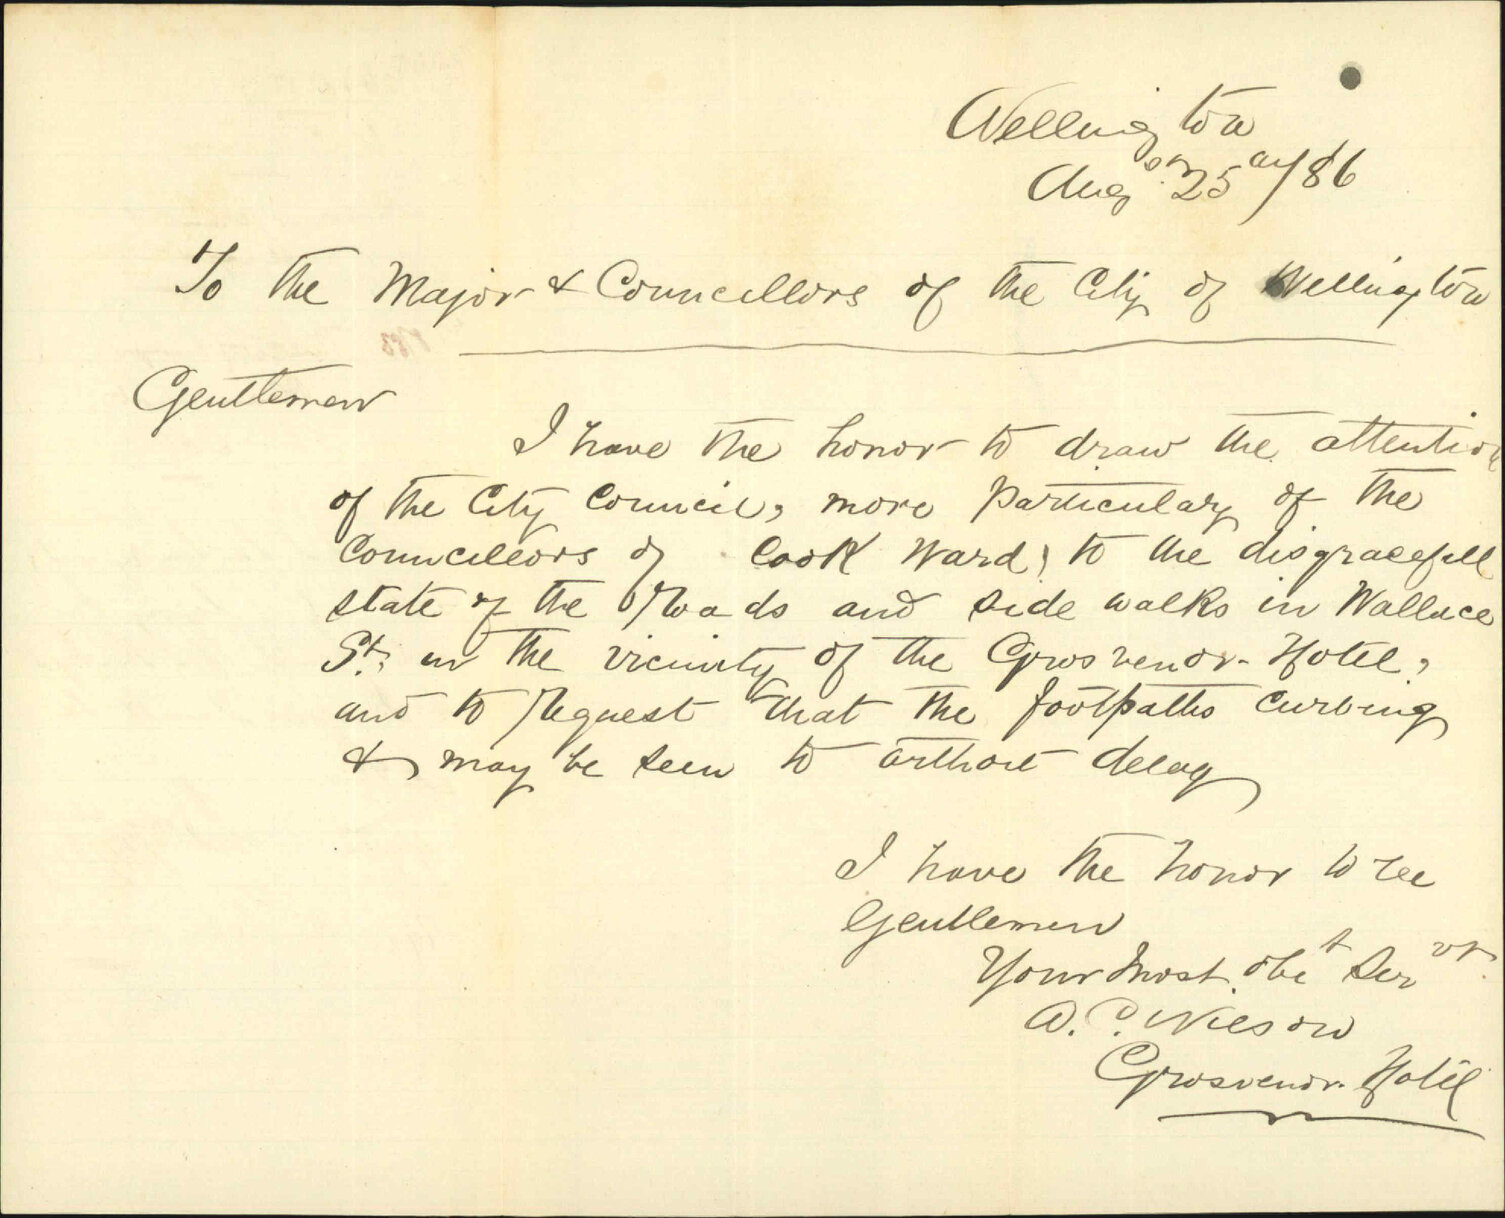 Wellington
Aug 25 /86
To the Major & Councillors of the City of Wellington
Gentlemen
I have the honor to draw the attention
of the City Council, more particulary of the
Councillors of Cook Ward, to the disgracefull
state of the Roads and side walks in Wallace
St. in the vicinity of the Grosvenor Hotel,
and to Request that the footpaths curbing
& may be seen to without delay
I have the honor to be
Gentlemen
Your Most obt Servt
A. C. Wilson
Grosvenor Hotel